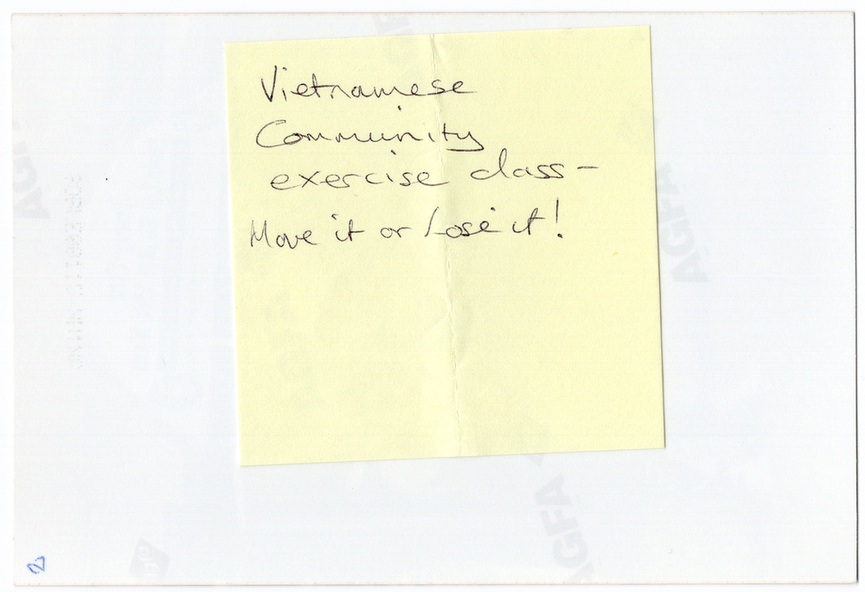 Vietnamese
Community
exercise class-
Move it or Lose it!
AGFA
AGFA
AGFA